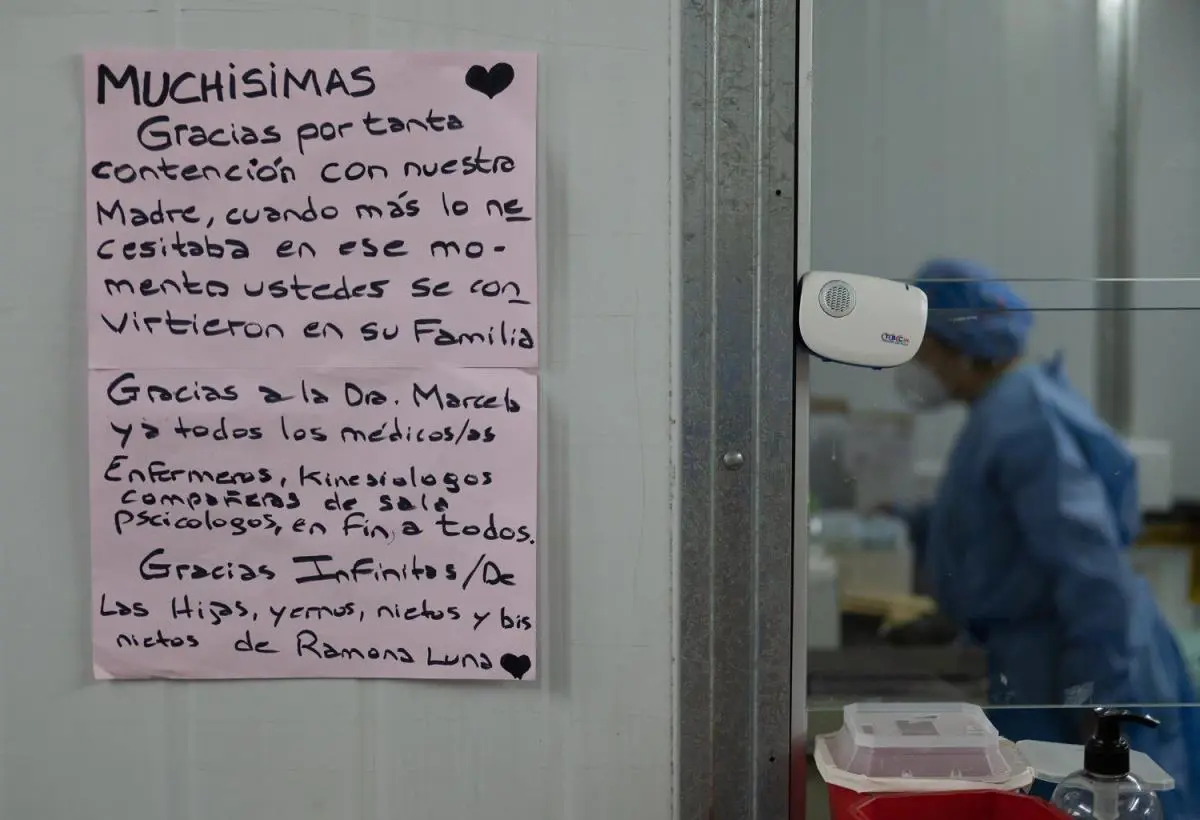 MUCHISIMAS
Gracias por tanta
contención con nuestra
Madre, cuando más lo ne
cesitaba en ese mo-
mento ustedes se con
virtieron en su Familia
Gracias a la Dra. Marcela
y a todos los médicos/as
Enfermeros, kinesiologos
compañeras de sala
pscicologos, en fin, a todos.
Gracias Infinitas/De
Las Hijas, yernos, nietos y bis
nietos de Ramona Luna